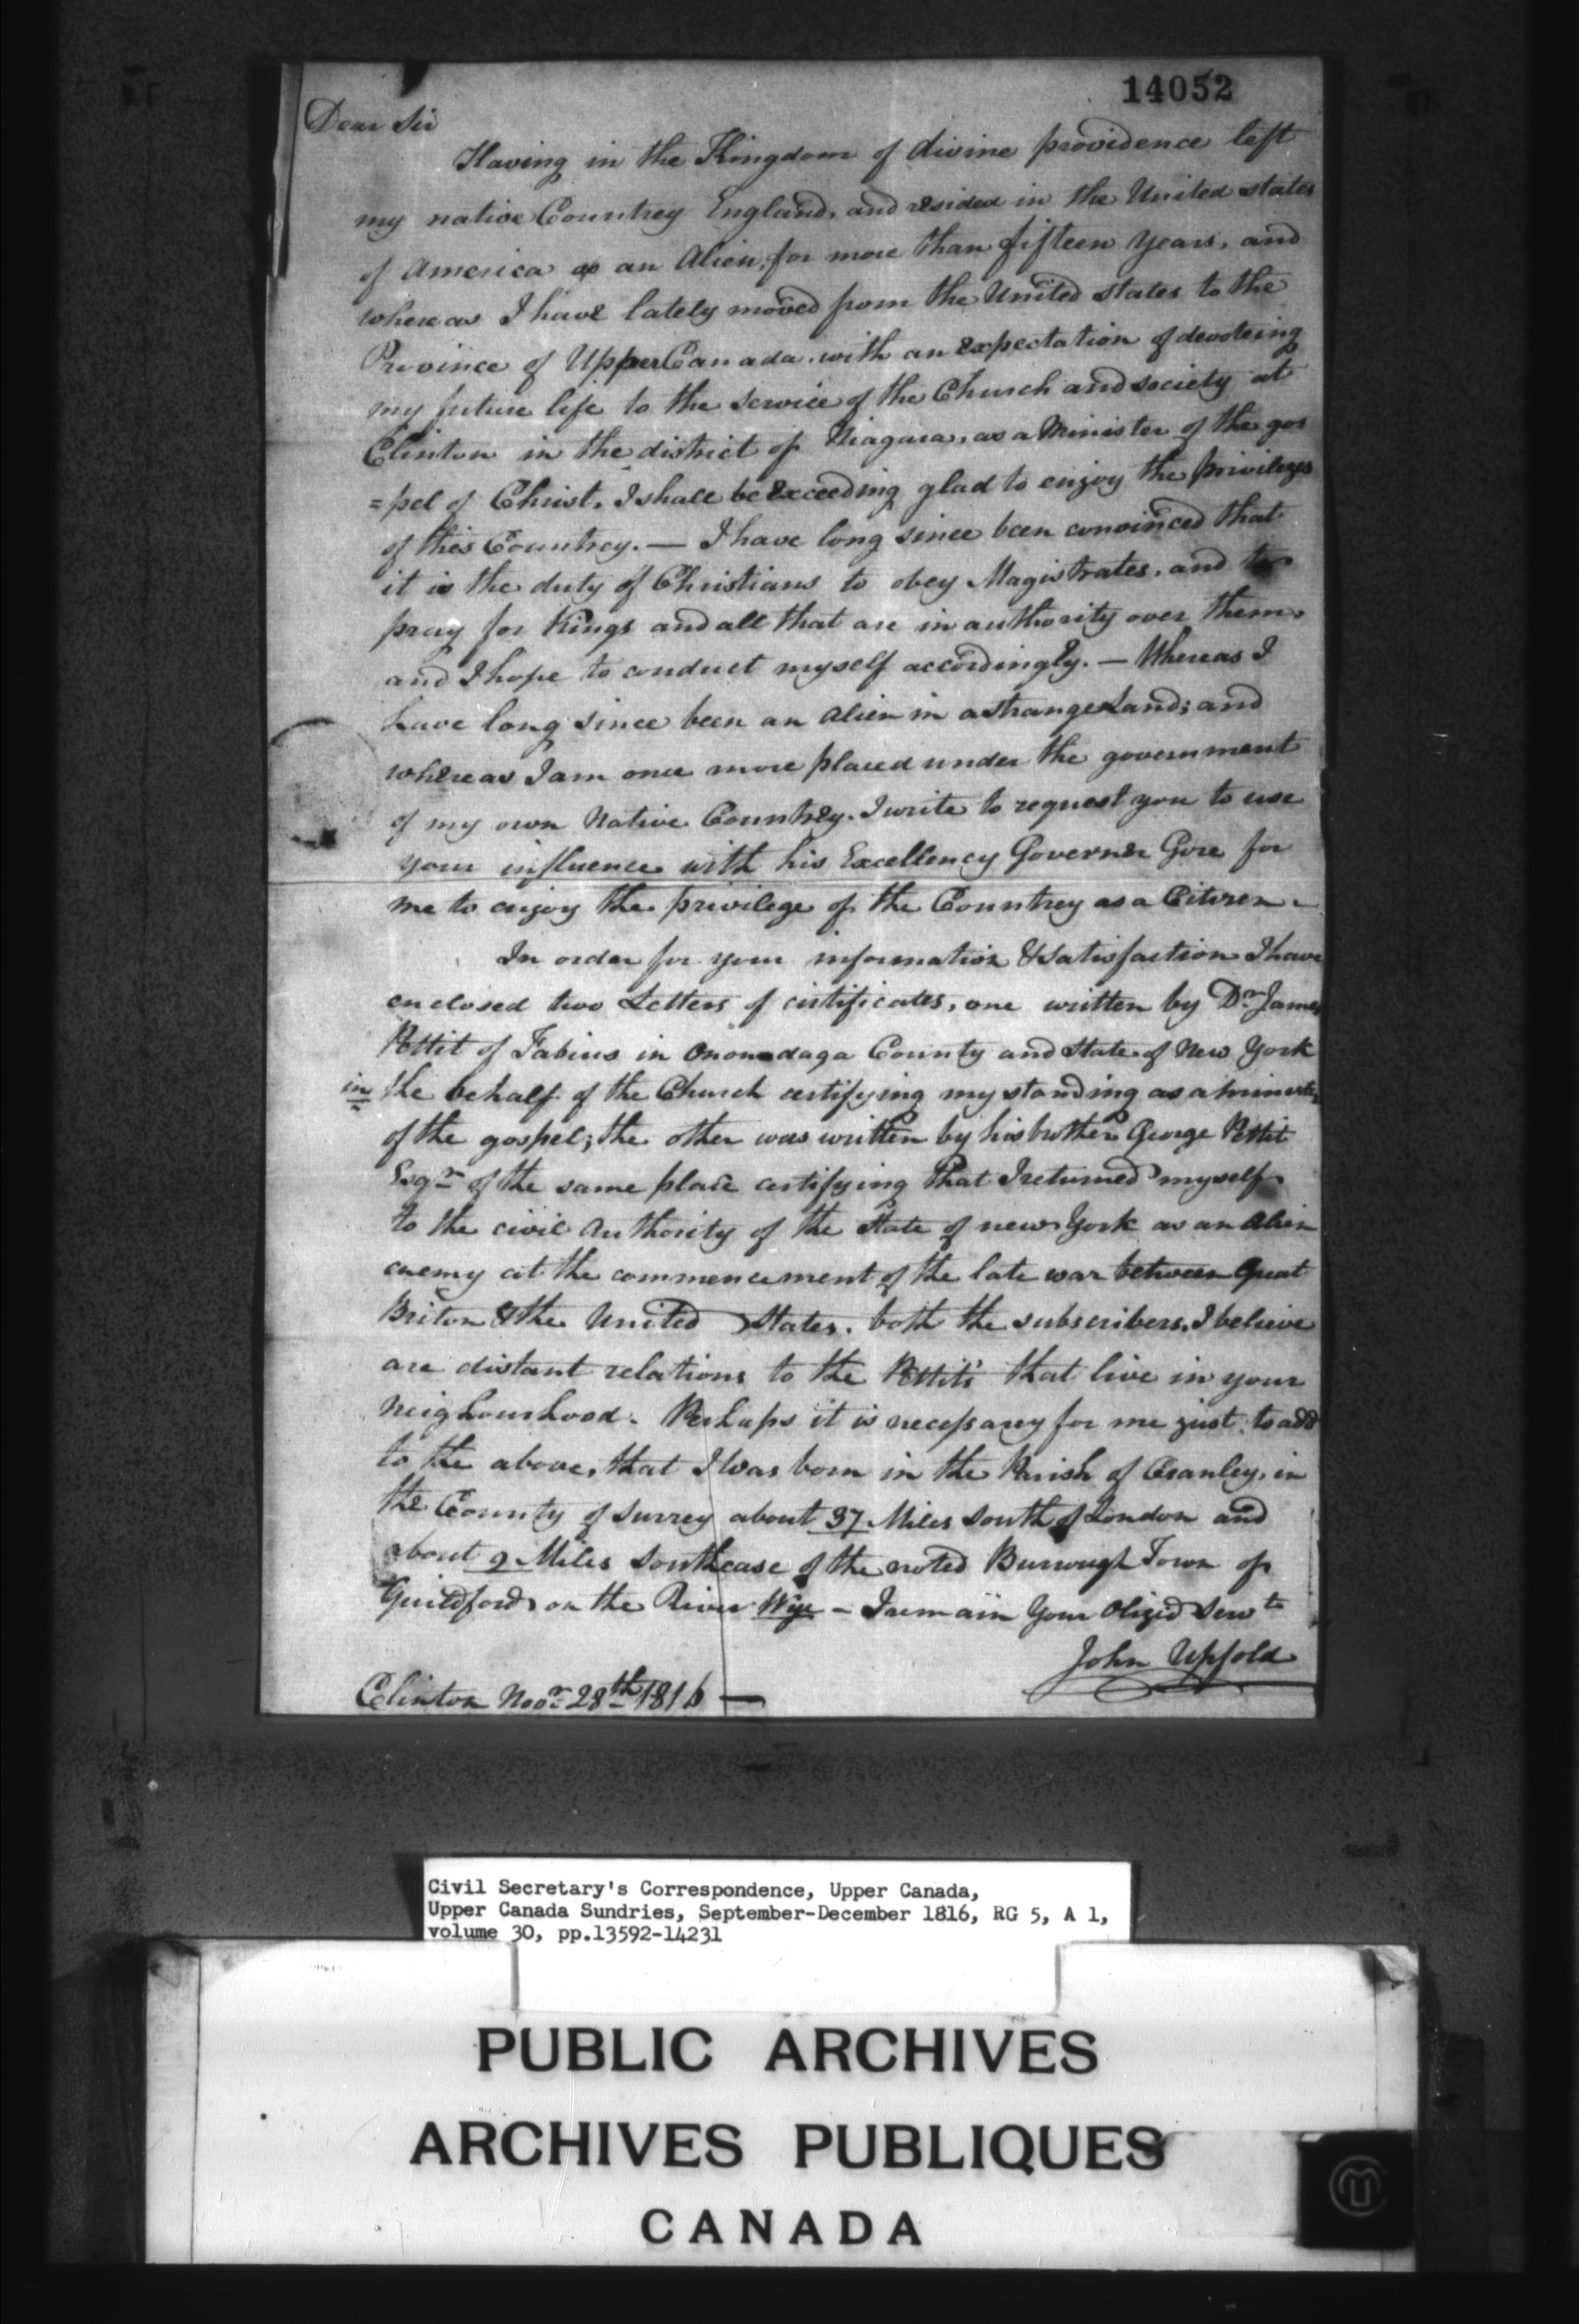 14052
Dear Sir
Having in the Kingdom of divine providence left
my native Countrey England, and resided in the United states
of America as an Alien, for more than fifteen years, and
whereas I have lately moved from the United states to the
Province of Upper Canada with an expectation of devoteing
my future life to the service of the Church and society at
Clinton in the district of Niagara, as a Minister of the gos
=pel of Christ, I shall be exceeding glad to enjoy the privileges
of this Countrey. — I have long since been convinced that
it is the duty of Christians to obey Magistrates, and to
pray for Kings and all that are in authority over them,
and I hope to conduct myself accordingly. — Whereas I
have long since been an Alien in a strange Land; and
whereas I am once more placed under the government
of my own Native Countrey. I write to request you to use
your influence with his Excellency Governer Gore for
me to enjoy the privilege of the Countrey as a Citizen -
In order for your information & satisfaction I have
enclosed two Letters of certificates, one written by Dr. James
Pettit of Fabius in Onondaga County and State of New York
in the behalf of the Church certifying my standing as a minister
of the gospel; the other was written by his brother George Pettit
Esqr. of the same place certifying that I returned myself
to the civil Authority of the State of new York as an Alien
enemy at the commencement of the late war between Great
Briton & the United States. both the subscribers, I believe
are distant relations to the Pettit's that live in your
Neighourhood. Perhaps it is necessary for me just to add
to the above, that I was born in the Parish of Cranley, in
the County of Surrey about 37 Miles South of London and
about 9 Miles Southease of the noted Burrough Town of
Guildford on the River Wye - I remain Your Oligid Servt
John Upfold
Clinton Novr. 28th 1816 —
Civil Secretary's Correspondence, Upper Canada,
Upper Canada Sundries, September-December 1816, RG 5, A 1,
volume 30, pp.13592-14231
PUBLIC ARCHIVES
ARCHIVES PUBLIQUES
CANADA